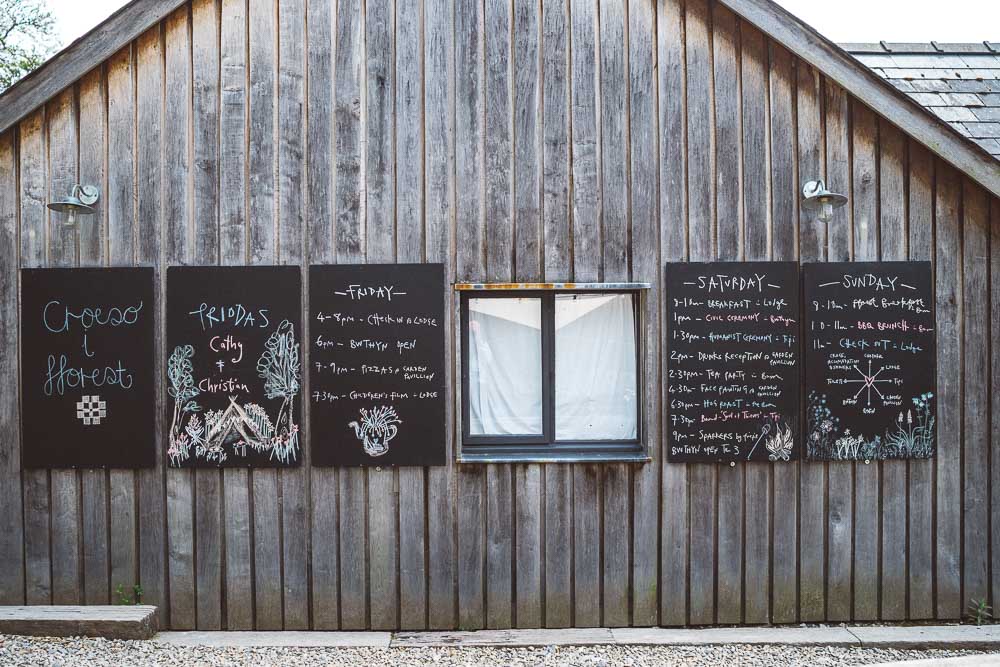 Croeso
i
fforest
PRIODAS
Cathy
+
Christian
—FRIDAY—
4-8pm - CHECK IN @ LODGE
6pm - BWTHYN OPEN
7-9pm - PIZZAS @ GARDEN PAVILLION
7.30pm - CHILDREN'S FILM - LODGE
—SATURDAY—
BREAKFAST - Lodge
1pm - CIVIC CEREMONY - Bwthyn
1.30pm - HUMANIST CEREMONY - Tipi
2pm - DRINKS RECEPTION @ GARDEN PAVILLION
2.30pm - TEA PARTY - Barn
4.30pm - FACE PAINTING @ GARDEN PAVILLION
6.30pm - HOG ROAST - Barn
7.30pm - Band - - Tipi
9pm - SPARKLERS by
BWTHYN OPEN TIL 3
—SUNDAY—
BREAKFAST
10-11am - BBQ BRUNCH - Barn
11am - CHECK OUT - Lodge
LODGE
TOILETS
TIPI
GARDEN PAVILLION
BARN